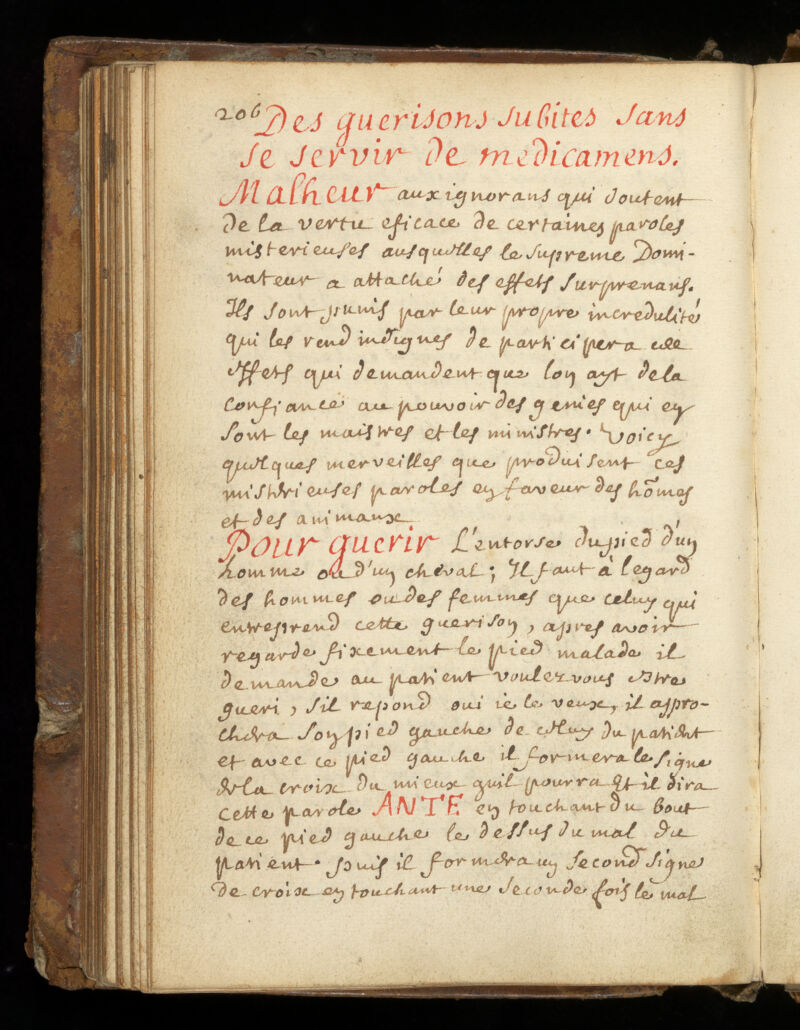 206 Des guerisons subites sans
se servir de medicamens.
Malheur aux ignorans qui doutent
de la vertu eficace de certaines paroles
misterieuses ausquelles le supreme Domi-
nateur a attaché des effets surprenans.
Ils sont punis par leur propre incredulité
qui les rend indignes de participer a ces
effets qui demandent que lon ayt de la
confiance au pouvoir des genies qui en
sont les maistres et les ministres. Voicy
quelques merveilles que produisent ces
misterieuses paroles en faveur des hõmes
et des animaux
Pour guerir L'entorse du pied d'un
homme ou d'un cheval; Il faut à legard
des hommes ou des femmes que celuy qui
entreprend cette guerison, apres avoir
regardé fixement le pied malade il
demande au patient voulez vous estre
gueri, sil repond oui ie le veux, il appro-
chera son pied gauche de celuy du patient
et avec ce pied gauche il formera le signe
de la croix du mieux quil pourra Et il dira
cette parole ANTE en touchant du bout
de ce pied gauche le dessus du mal du
patient. puis il formera un second signe
de croix en touchant une seconde fois le mal